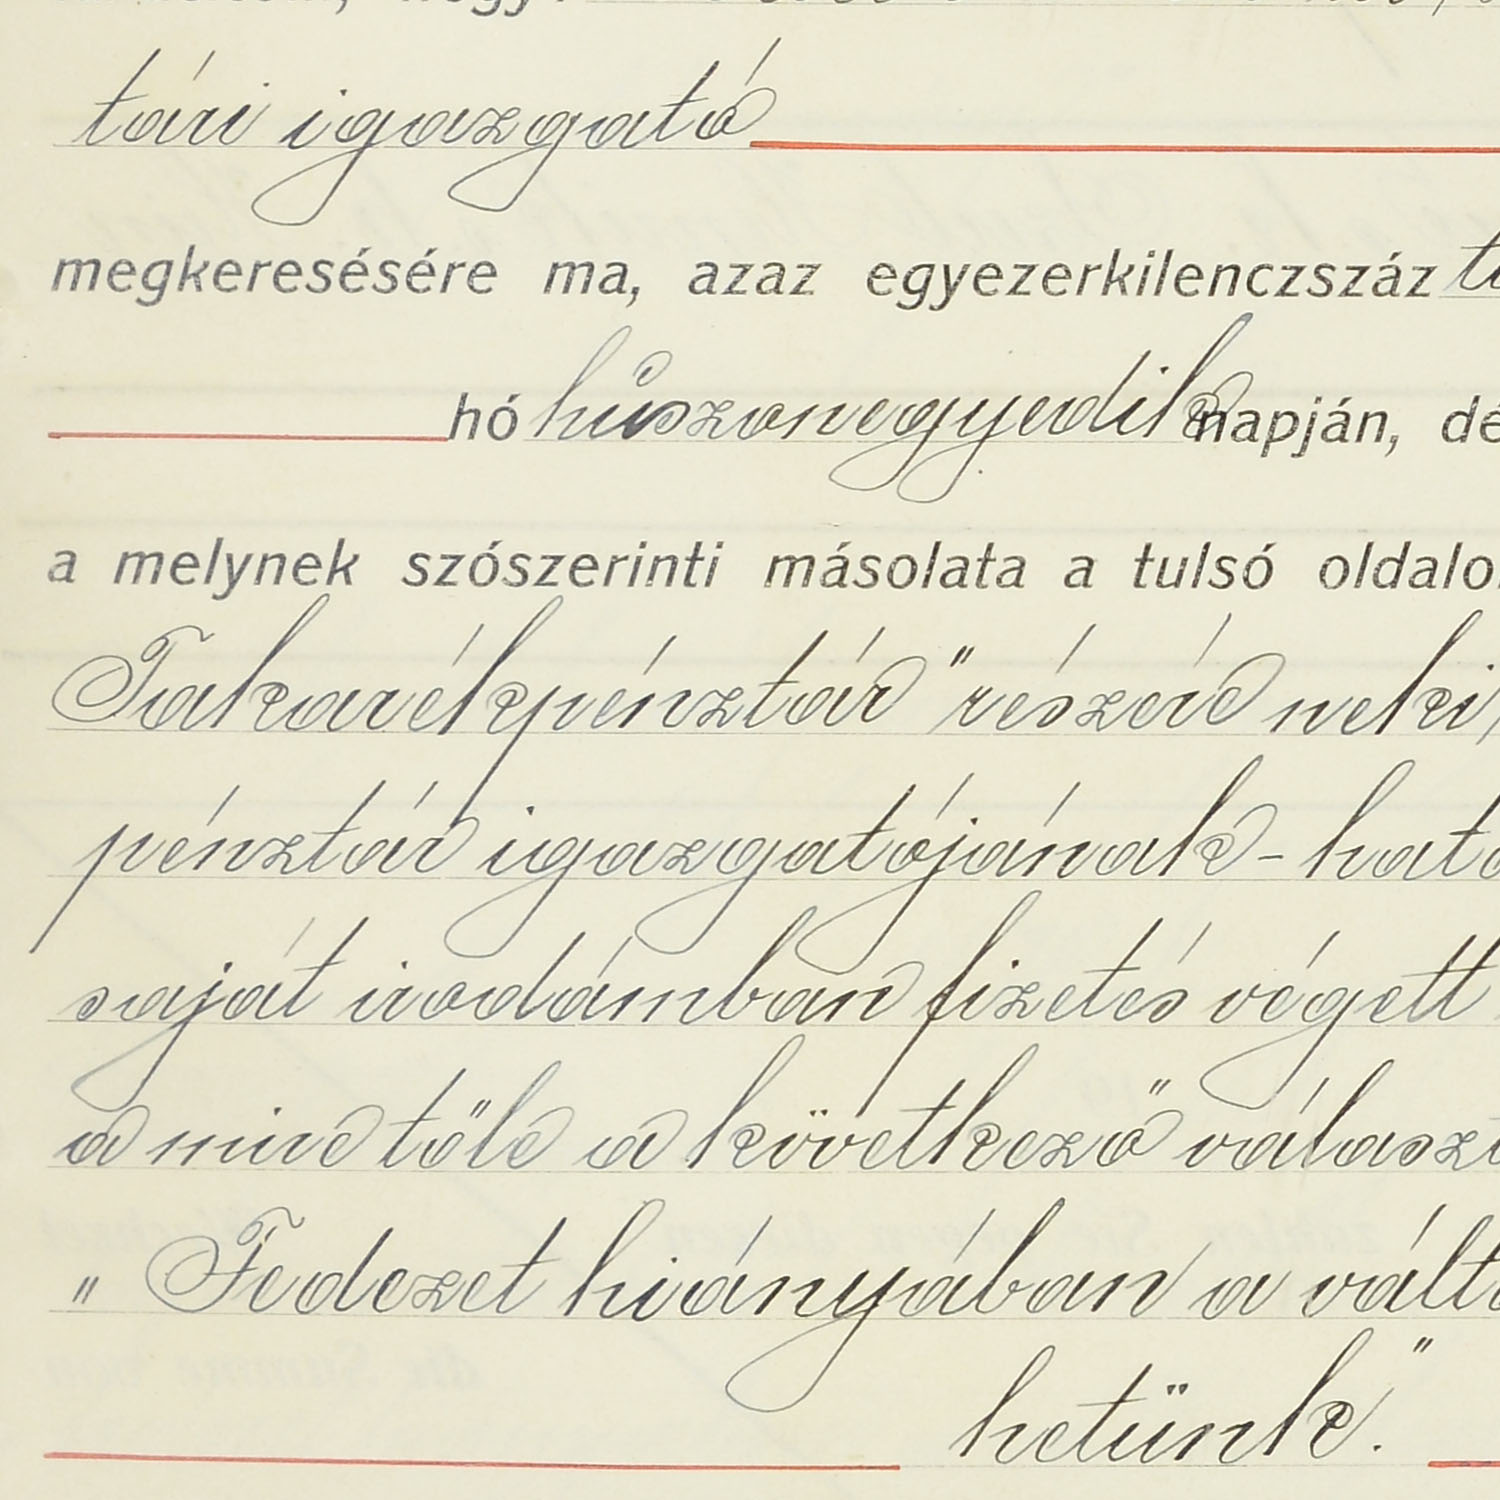 hogy
tári igazgató
megkeresésére ma, azaz egyezerkilenczszáz
hó húszonegyedike napján, dé
a melynek szószerinti másolata a tulsó oldalo
Takarékpénztár" részére neki,
pénztár igazgatójának - hatá
saját irodámban fizetés végett
a mire tőle a következő választ
„Fedezet hiányában a vált
hetünk."